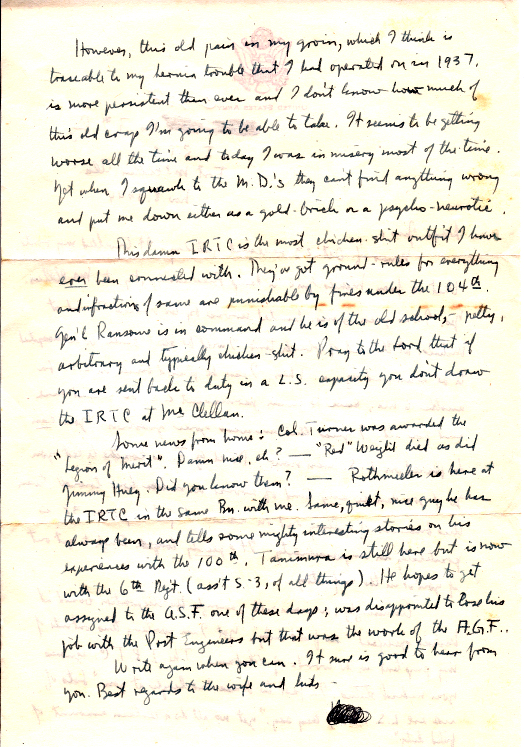 However, this old pain in my groin, which I think is
traceable to my hernia trouble that I had operated on in 1937,
is more persistent then ever and I don't know how much of
this old crap I'm going to be able to take. It seems to be getting
worse all the time and today I was in misery most of the time.
Yet when I squawk to the M.D.'s they can't find anything wrong
and put me down either as a gold-brick or a psycho-neurotic.
This damn IRTC is the most chicken-shit outfit I have
ever been connected with. They've got ground-rules for everything
and infractions of same are punishable by fines under the 104th.
Gen'l Ransome is in command and he is of the old school, - petty,
arbitrary and typically chicken-shit. Pray to the Lord that if
you are sent back to duty in a L.S. capacity you don't draw
the IRTC at McClellan.
Some news from home: Col. Turner was awarded the
"Legion of Merit". Damn nice, eh? — "Red" Weight died as did
Jimmy Huey. Did you know them? — Rothmeiler is here at
the IRTC in the same Bn. with me. Same, quiet, nice guy he has
always been, and tells some mighty interesting stories on his
experiences with the 100th. Tanimura is still here but is now
with the 6th Reg't. (ass't S-3, of all things). He hopes to get
assigned to the A.S.F. one of these days; was disappointed to lose his
job with the Post Engineers but that was the work of the A.G.F..
Write again when you can. It sure is good to hear from
you. Best regards to the wife and kids -